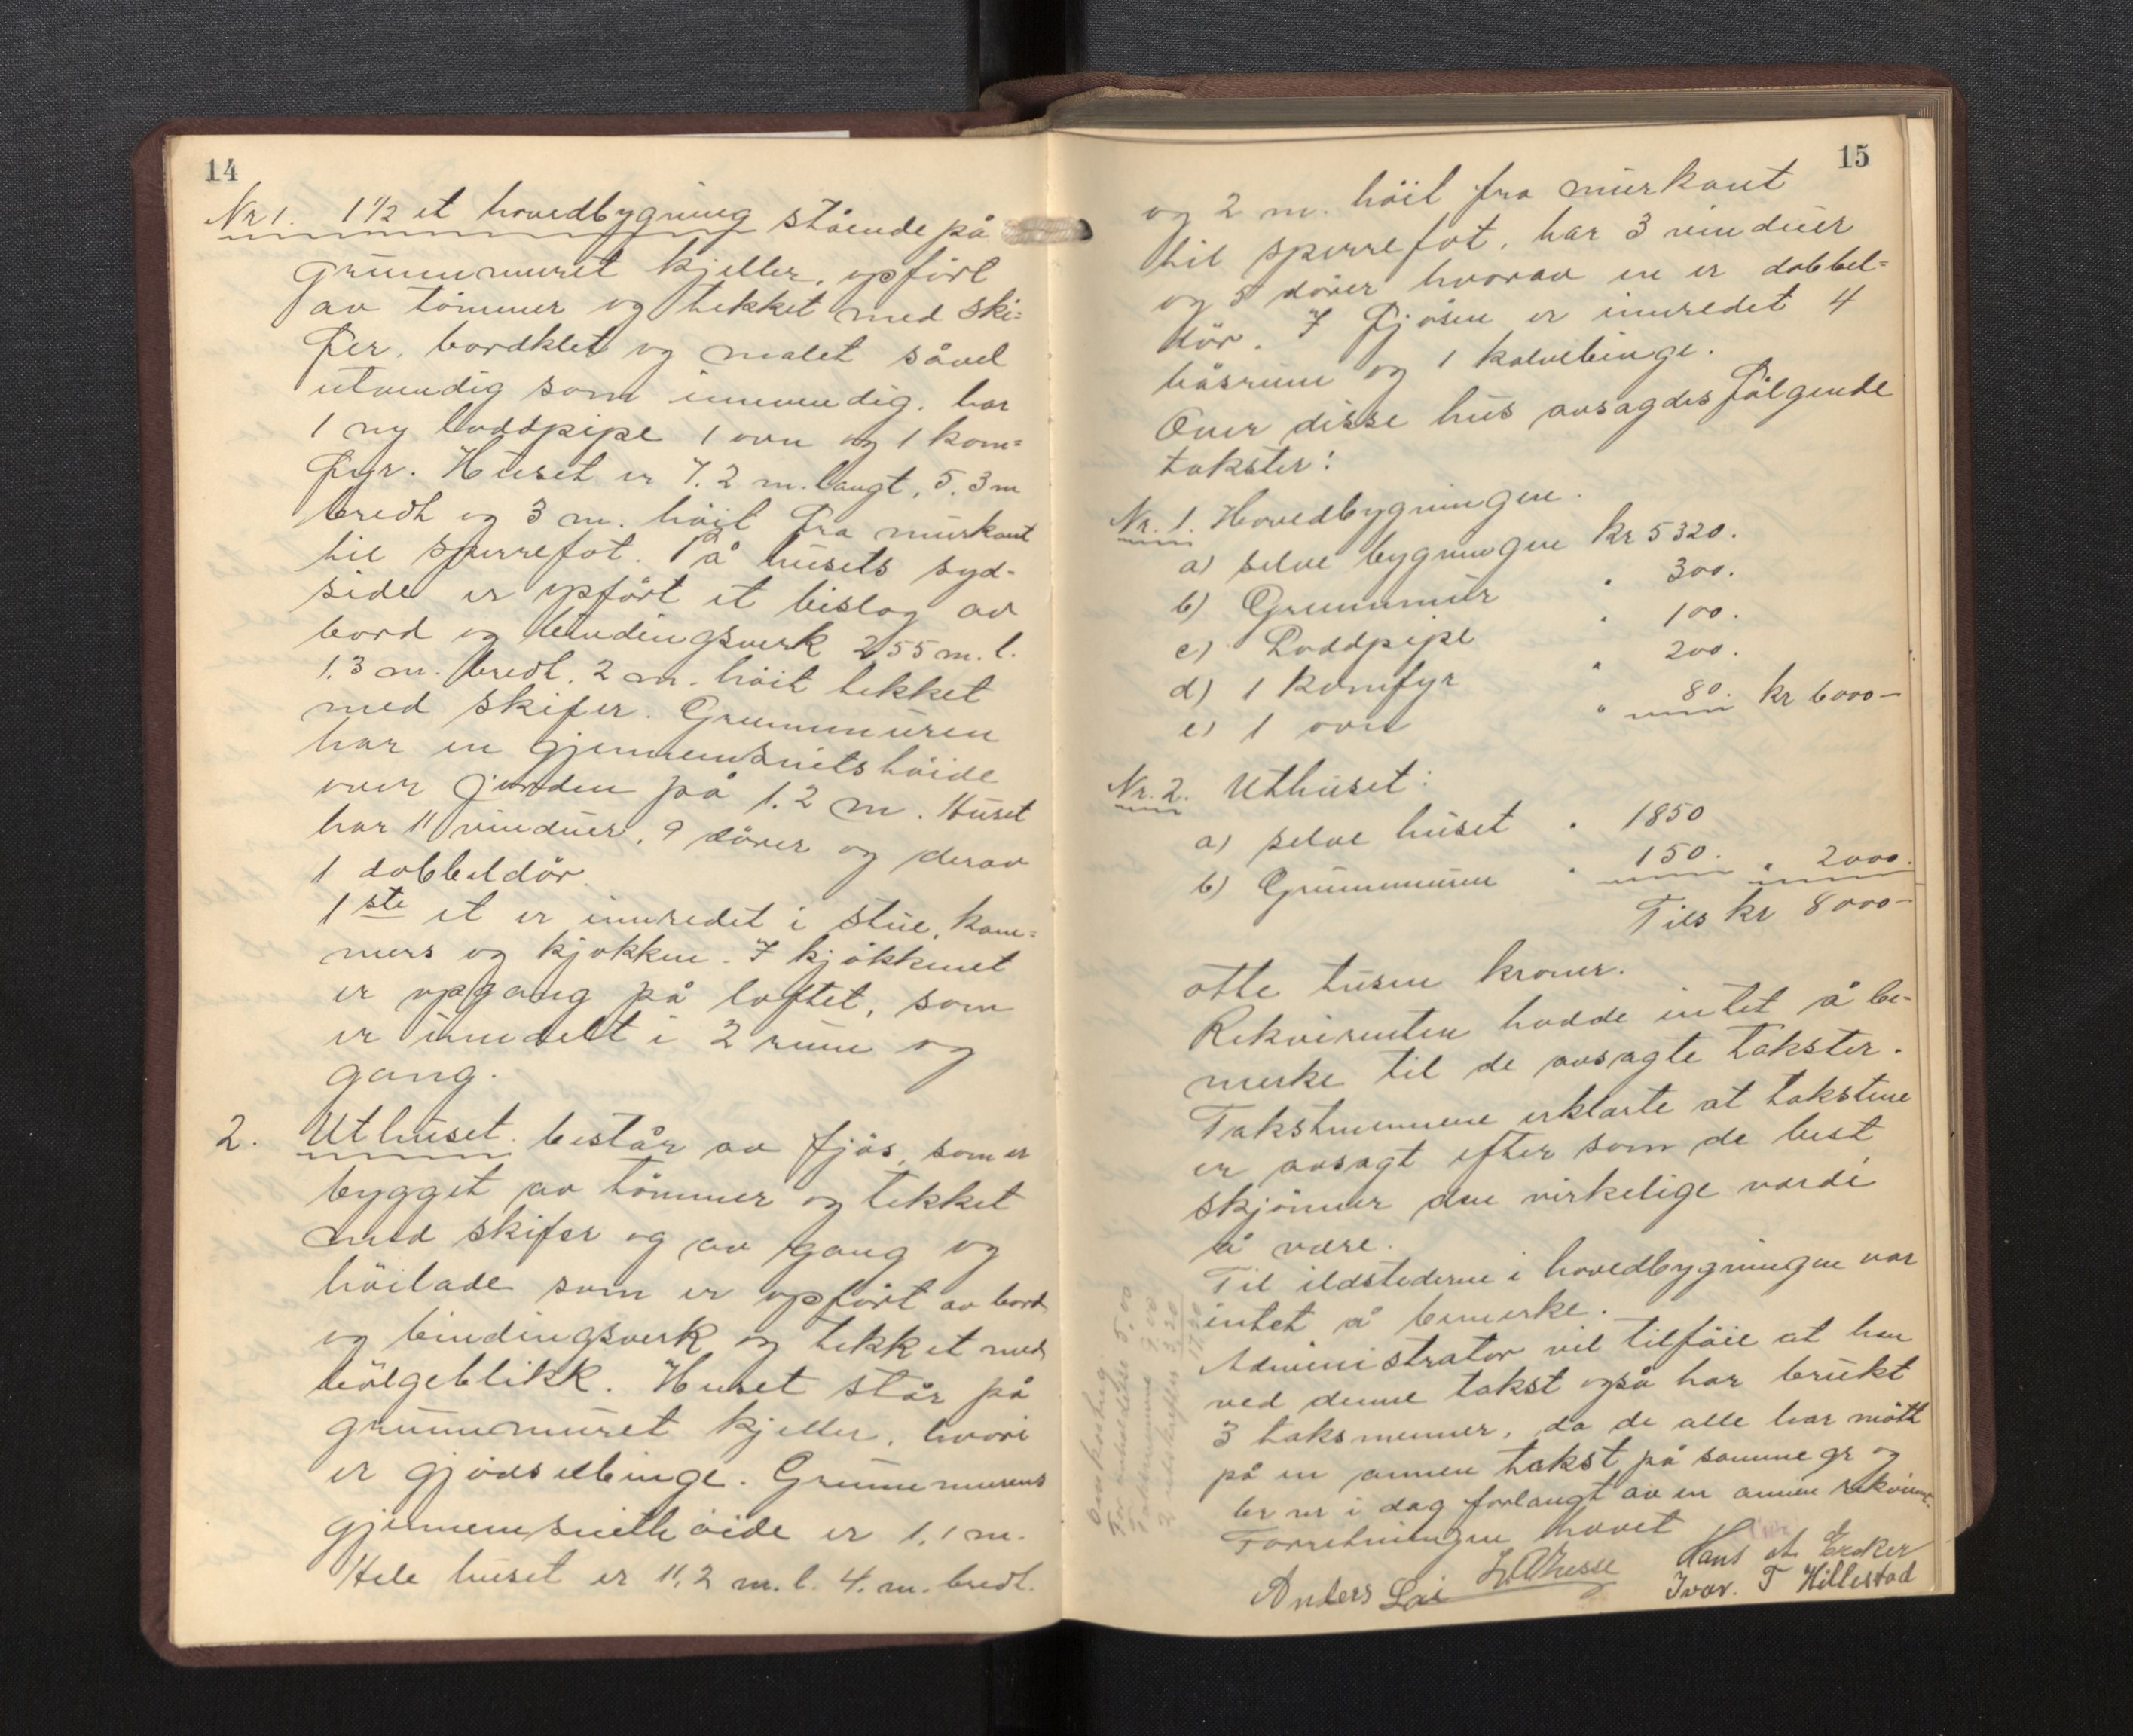 14
Nr 1. 1 1/2 et hovedbygning stående på
grunnmuret kjeller, opført
av tømmer og tekket med ski=
fer, bordklet og malet såvel
utvendig som innvendig, har
1 ny loddpipe 1 ovn og 1 kom=
fyr. Huset er 7.2 m. langt, 5.3 m
bredt og 3 m. høit fra murkant
til sperrefot. På husets syd-
side er opført et bislag av
bord og bindingsverk 2.55 m. l.
1.3 m. bredt, 2 m. høit tekket
med skifer. Grunnmuren
har en gjennemsnitshøide
over jorden på 1.2 m. Huset
har 11 vinduer, 9 dører og derav
1 dobbeldør.
1ste et er innredet i stue, kam=
mers og kjøkken. I kjøkkenet
er opgang på loftet, som
er inndelt i 2 rum og
gang.
2. Uthuset. består av fjøs, som er
bygget av tømmer og tekket
med skifer og av gang og
høilade som er opført av bord
og bindingsverk og tekket med
bølgeblikk. Huset står på
grunnmuret kjeller, hvori
er gjødselbinge. Grunnmurens
gjennemsnitthøide er 1.1 m.
Hele huset er 11,2 m. l. 4. m. bredt.
15
og 2 m. høit fra murkant
til sperrefot, har 3 vinduer
og 8 dører hvorav en er dobbel=
dør. I fjøsen er innredet 4
båsrum og 1 kalvebinge.
Over disse hus avsagdes følgende
takster:
Nr. 1. Hovedbygningen.
a) selve bygningen kr 5320.
b) Grunnmur " 300.
c) Loddpipe " 100.
d) 1 komfyr " 200.
e) 1 ovn " 80. kr 6000 —
Nr. 2. Uthuset:
a) selve huset " 1850
b) Grunnmuren " 150. " 2000.
Tils kr 8000 —
otte tusen kroner.
Rekvirenten hadde intet å be-
merke til de avsagte takster.
Takstmennene erklærte at takstene
er avsagt efter som de best
skjønner den virkelige værdi
å være.
Til ildstederne i hovedbygningen var
intet å bemerke.
Administrator vil tilføie at han
ved denne takst også har brukt
3 taksmenner, da de alle har møtt
på en annen takst på samme gr og
br nr i dag forlangt av en annen rekvirent.
Forretningen hævet
Anders Lai Hans A.
Ivar. T Hillestad
Omkostng.
5,00
Takstmennene 9.00
2 3.20
17.20